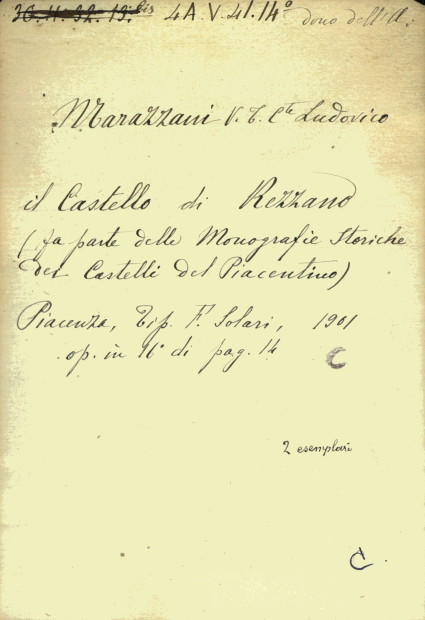 30. H. 32. 13. bis 4A V. 41. 14° dono dell'A.
Marazzani V. T. Cte Ludovico
il Castello di Rezzano
(fa parte delle Monografie Storiche
dei Castelli del Piacentino)
Piacenza, Tip. F. Solari, 1901
op. in 16° di pag. 14 C
2 esemplari
C